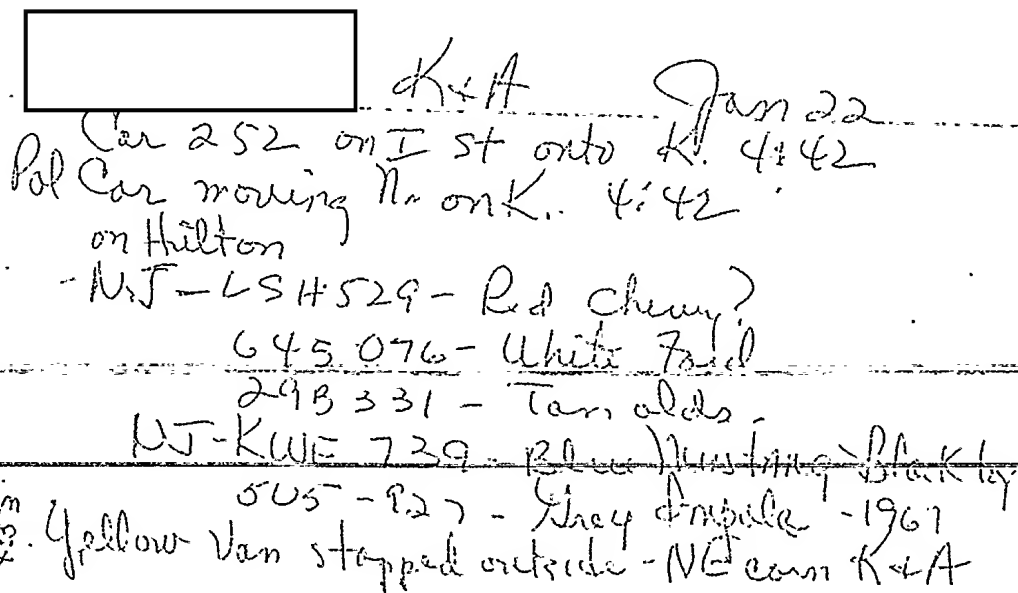 K+A Jan 22
Car 252 on I St onto K. 4:42
Pol Car moving N. on K. 4:42
on Hilton
-NJ-LSH529- Red Chevy?
645 076- White Ford
29B 331 - Tan olds.
NJ-KWE 739 - Blue Mustang-Black top
505-827 - Gray Impala -1967
Yellow Van stopped outside - NE corn K+A